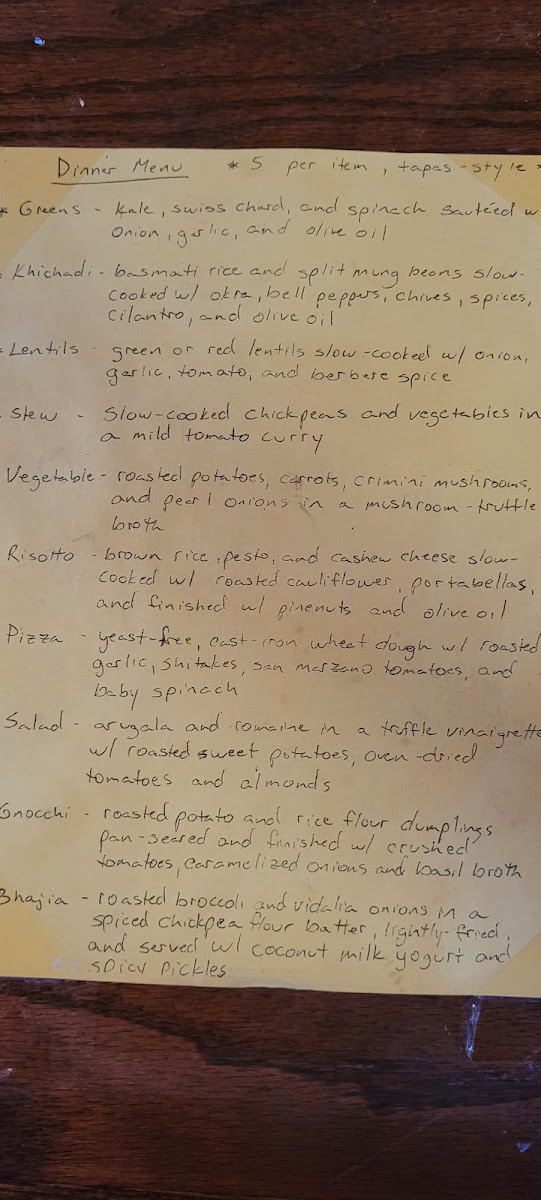 Dinner Menu * 5 per item, tapas-style *
* Greens - kale, swiss chard, and spinach sautéed w
onion, garlic, and olive oil
Khichadi - basmati rice and split mung beans slow-
cooked w/ okra, bell peppers, chives, spices,
cilantro, and olive oil
Lentils - green or red lentils slow-cooked w/ onion,
garlic, tomato, and berbere spice
Stew - Slow-cooked chickpeas and vegetables in
a mild tomato curry
Vegetable - roasted potatoes, carrots, crimini mushrooms,
and pearl onions in a mushroom-truffle
broth
Risotto - brown rice, pesto, and cashew cheese slow-
cooked w/ roasted cauliflower, portabellas,
and finished w/ pinenuts and olive oil
Pizza - yeast-free, cast-iron wheat dough w/ roasted
garlic, shitakes, san marzano tomatoes, and
baby spinach
Salad - arugala and romaine in a truffle vinaigrette
w/ roasted sweet potatoes, oven-dried
tomatoes and almonds
Gnocchi - roasted potato and rice flour dumplings
pan-seared and finished w/ crushed
tomatoes, caramelized onions and basil broth
Bhajia - roasted broccoli and vidalia onions in a
spiced chickpea flour batter, lightly-fried,
and served w/ coconut milk yogurt and
spicy pickles